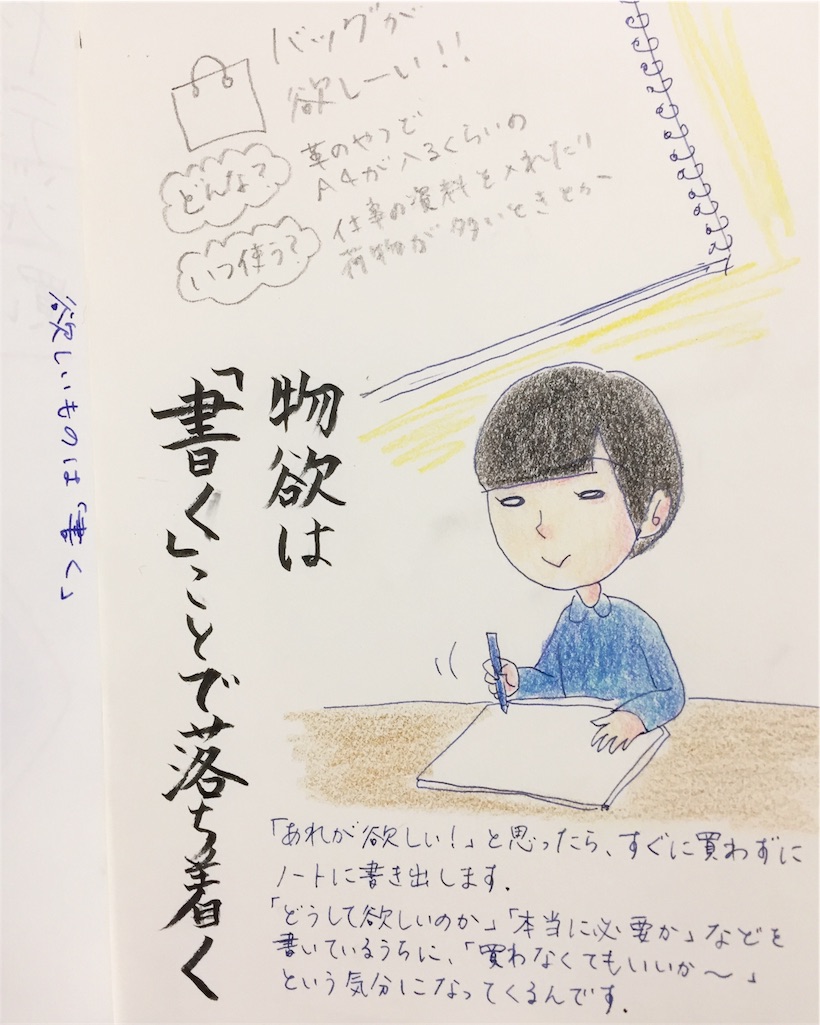 バッグが
欲しーい!!
どんな?
革のやつで
A4が入るくらいの
いつ使う?
仕事の資料を入れたり
荷物が多いときとか〜
物欲は
「書く」ことで落ち着く
欲しいものは「書く」
「あれが欲しい!」と思ったら、すぐに買わずに
ノートに書き出します.
「どうして欲しいのか」「本当に必要か」などを
書いているうちに、「買わなくてもいいか〜」
という気分になってくるんです.